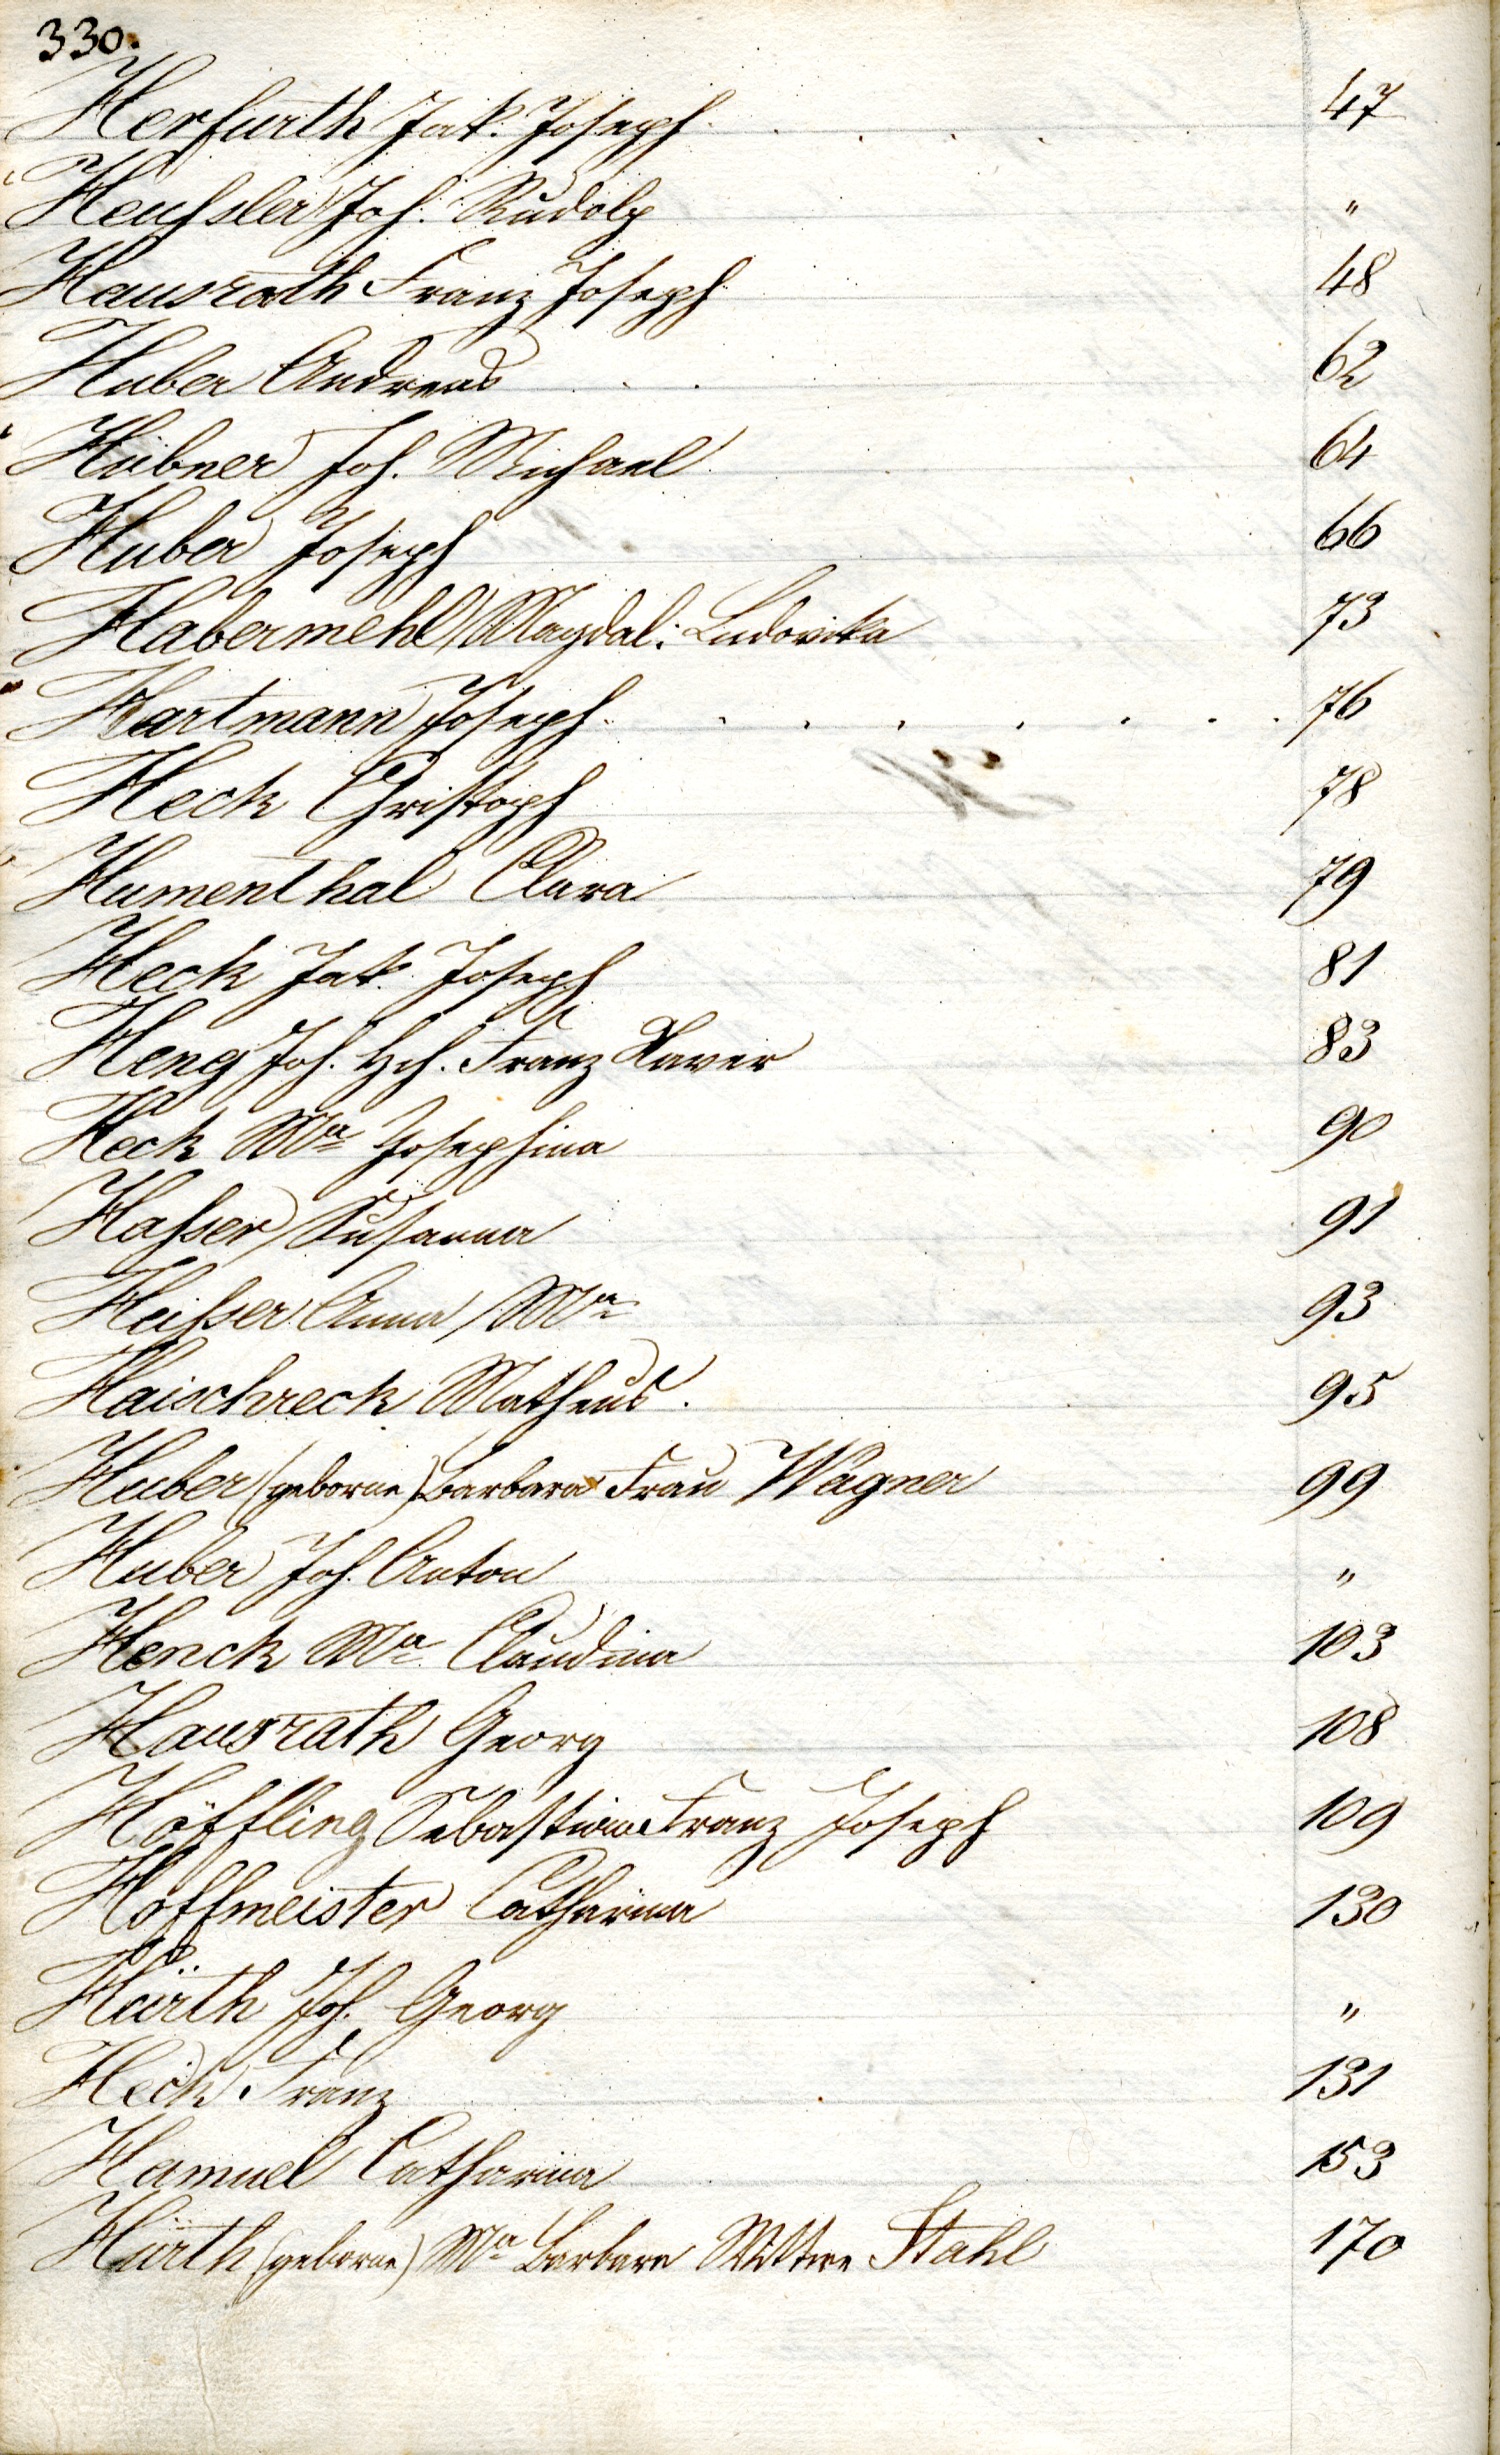 330.
Herfurth Jak. Joseph . . . . . 47
Heußler Joh. Rudolp "
Hausrath Franz Joseph 48
Huber Andreas . . 62
Hübner Joh. Michael 64
Huber Joseph 66
Habermehl Magdal: Ludovika 73
Hartmann Joseph . . . . . . . . 76
Heck Christoph 78
Humenthal Clara 79
Heck Jak. Joseph 81
Heng Joh. Hch. Franz Xaver 83
Heck Mª Josephina 90
Haßer Susanna 91
Anna Mª 93
Haischreck Matheus. 95
Huber (geborne) Barbara Frau Wagner 99
Huber Joh. Anton "
Henck Mª Claudina 103
Hausrath Georg 108
Höffling Sebastian Franz Joseph 109
Hoffmeister Catharina 130
Hürth Joh. Georg "
Heck Franz 131
Hamuel Catharina 153
Hürth (geborne) Mª Barbara Wittwe Stahl 170